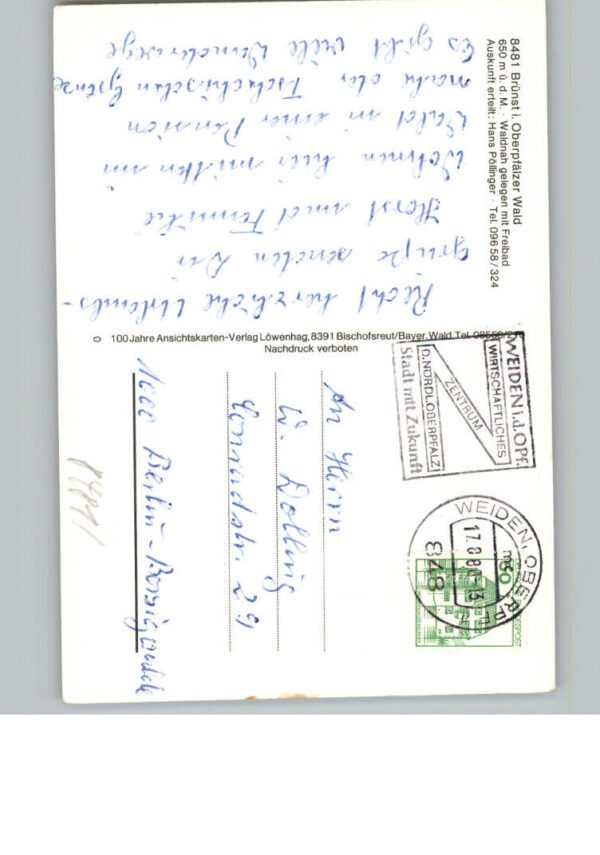 8481 Brünst i. Oberpfälzer Wald
650 m ü. d. M. · Waldnah gelegen mit Freibad
Auskunft erteilt: Hans Pöllinger · Tel. 096 58 / 324
Recht herzliche Urlaubs-
grüße senden Dir
Horst und Familie
Wohnen hier mitten im
Wald in einer Pension
nahe der Tschechischen Grenze
Es gibt viele Wanderwege
100 Jahre Ansichtskarten-Verlag Löwenhag, 8391 Bischofsreut/Bayer. Wald, Tel.
Nachdruck verboten
WEIDEN i.d.OPf.
WIRTSCHAFTLICHES
ZENTRUM
D. NORDLOBERPFALZ
Stadt mit Zukunft
WEIDEN, OBERPF
17.8.8
848
50
An Herrn
W. Dolling
Conradstr. 29
1000 Berlin-Borsigwalde